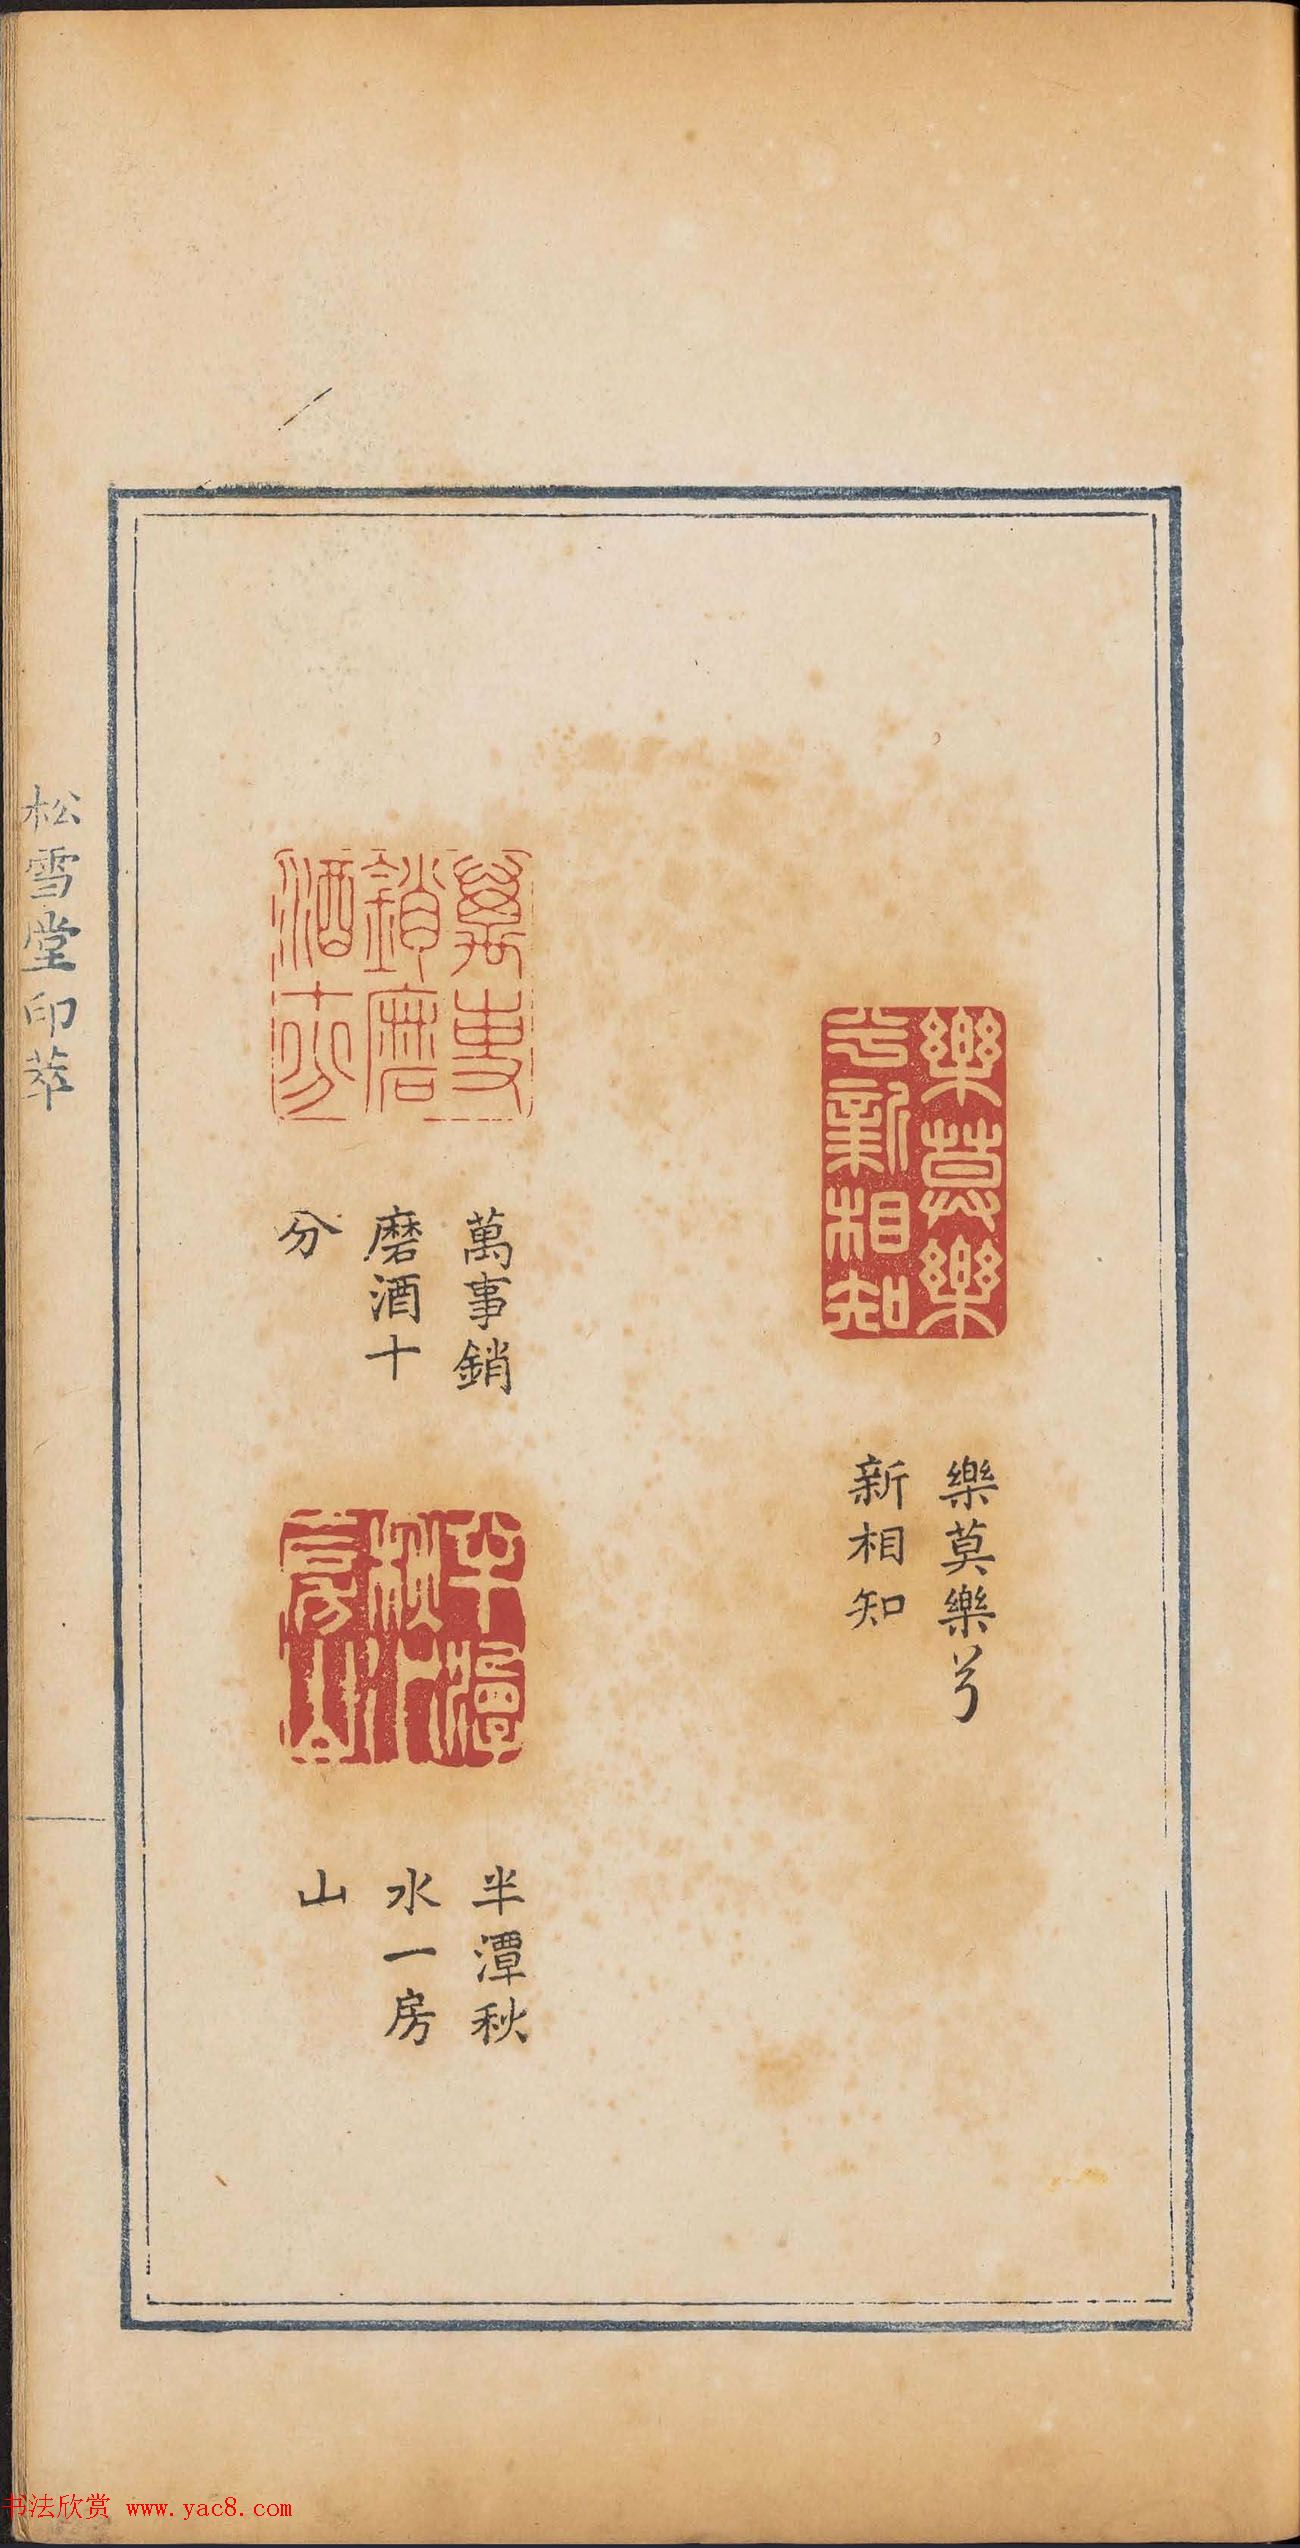 樂莫樂兮
新相知
樂莫樂
兮新相知
萬事
銷磨
酒十分
萬事銷
磨酒十
分
半潭
秋水
一房山
半潭秋
水一房
山
松雪堂印萃
书法欣赏 www.yac8.com